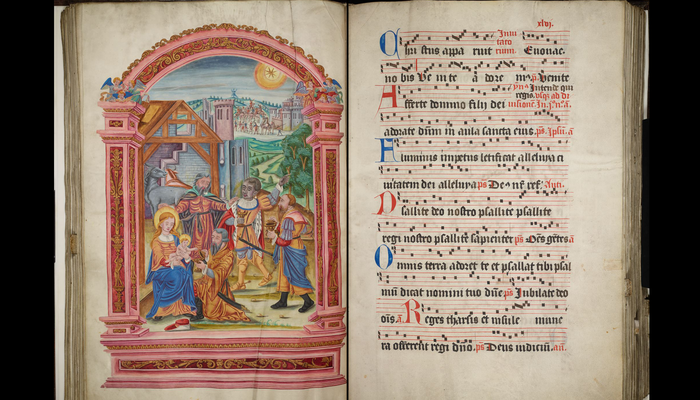 xlvi.
Chri stus appa ruit Invi tato rium. Euouae.
no bis Ve ni te a dore mᵘˢ p̄s Venite
Afferte domino filij dei
adorate dūm in aula sancta eius. p̄s
Fluminis impetus letificat alleluya ci
uitatem dei alleluya p̄s Deᵘˢ nr̄ ref.
Psallite deo nostro psallite psallite
regi nostro psallite sapienter p̄s
Omnis terra adoret te et psallat tibi psal
mū dicat nomini tuo dn̄e p̄s Jubilate deo
Reges tharsis et insule mune
ra offerent regi dn̄o. p̄s Deus iudiciū. añ.